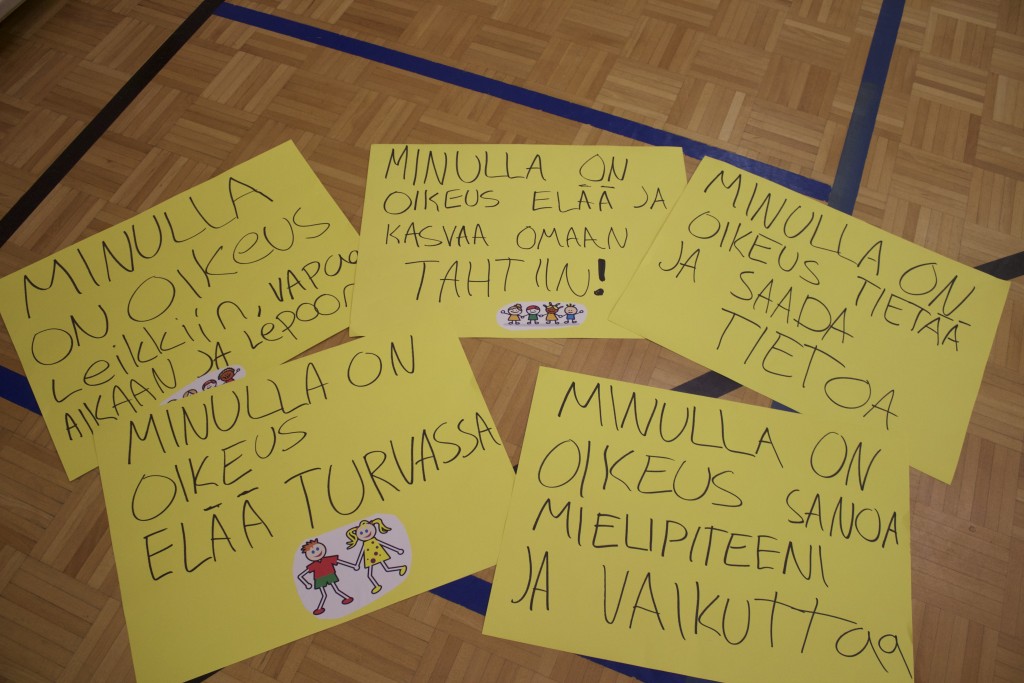 MINULLA
ON OIKEUS
LEIKKIIN, VAPAA
AIKAAN JA LEPOON
MINULLA ON
OIKEUS ELÄÄ JA
KASVAA OMAAN
TAHTIIN!
MINULLA ON
OIKEUS TIETÄÄ
JA SAADA
TIETOA
MINULLA ON
OIKEUS
ELÄÄ TURVASSA
MINULLA ON
OIKEUS SANOA
MIELIPITEENI
JA VAIKUTTaa